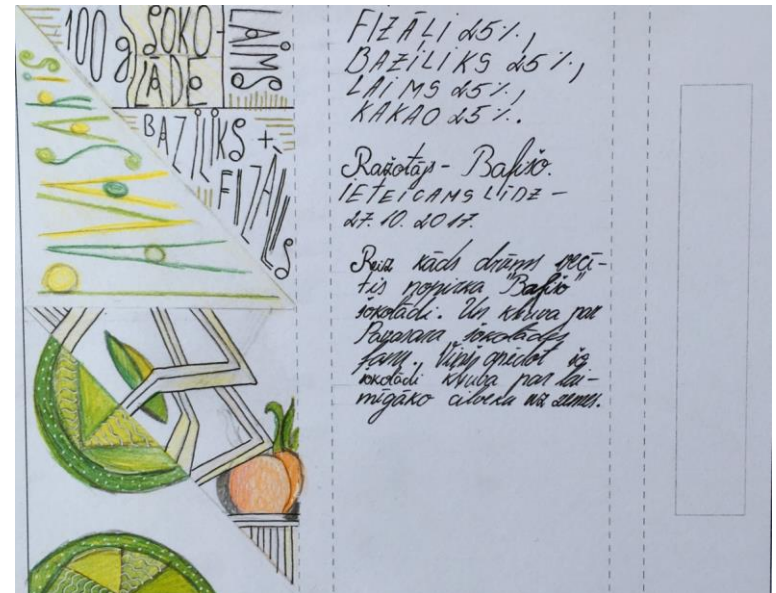 100 g ŠOKO-
LĀDE
LAIMS
BAZILIKS +
FIZĀLIS
FIZĀLI 25%,
BAZILIKS 25%,
LAIMS 25%,
KAKAO 25%.
Ražotājs - Bafišo.
IETEICAMS LĪDZ -
27. 10. 2017.
Reiz kāds drūms večī-
tis nopirka "Bafišo"
šokolādi. Un kļuva par
Pavasara šokolādes
fanu. Viņš apēdot šo
šokolādi kļuva par lai-
mīgāko cilvēku uz zemes.